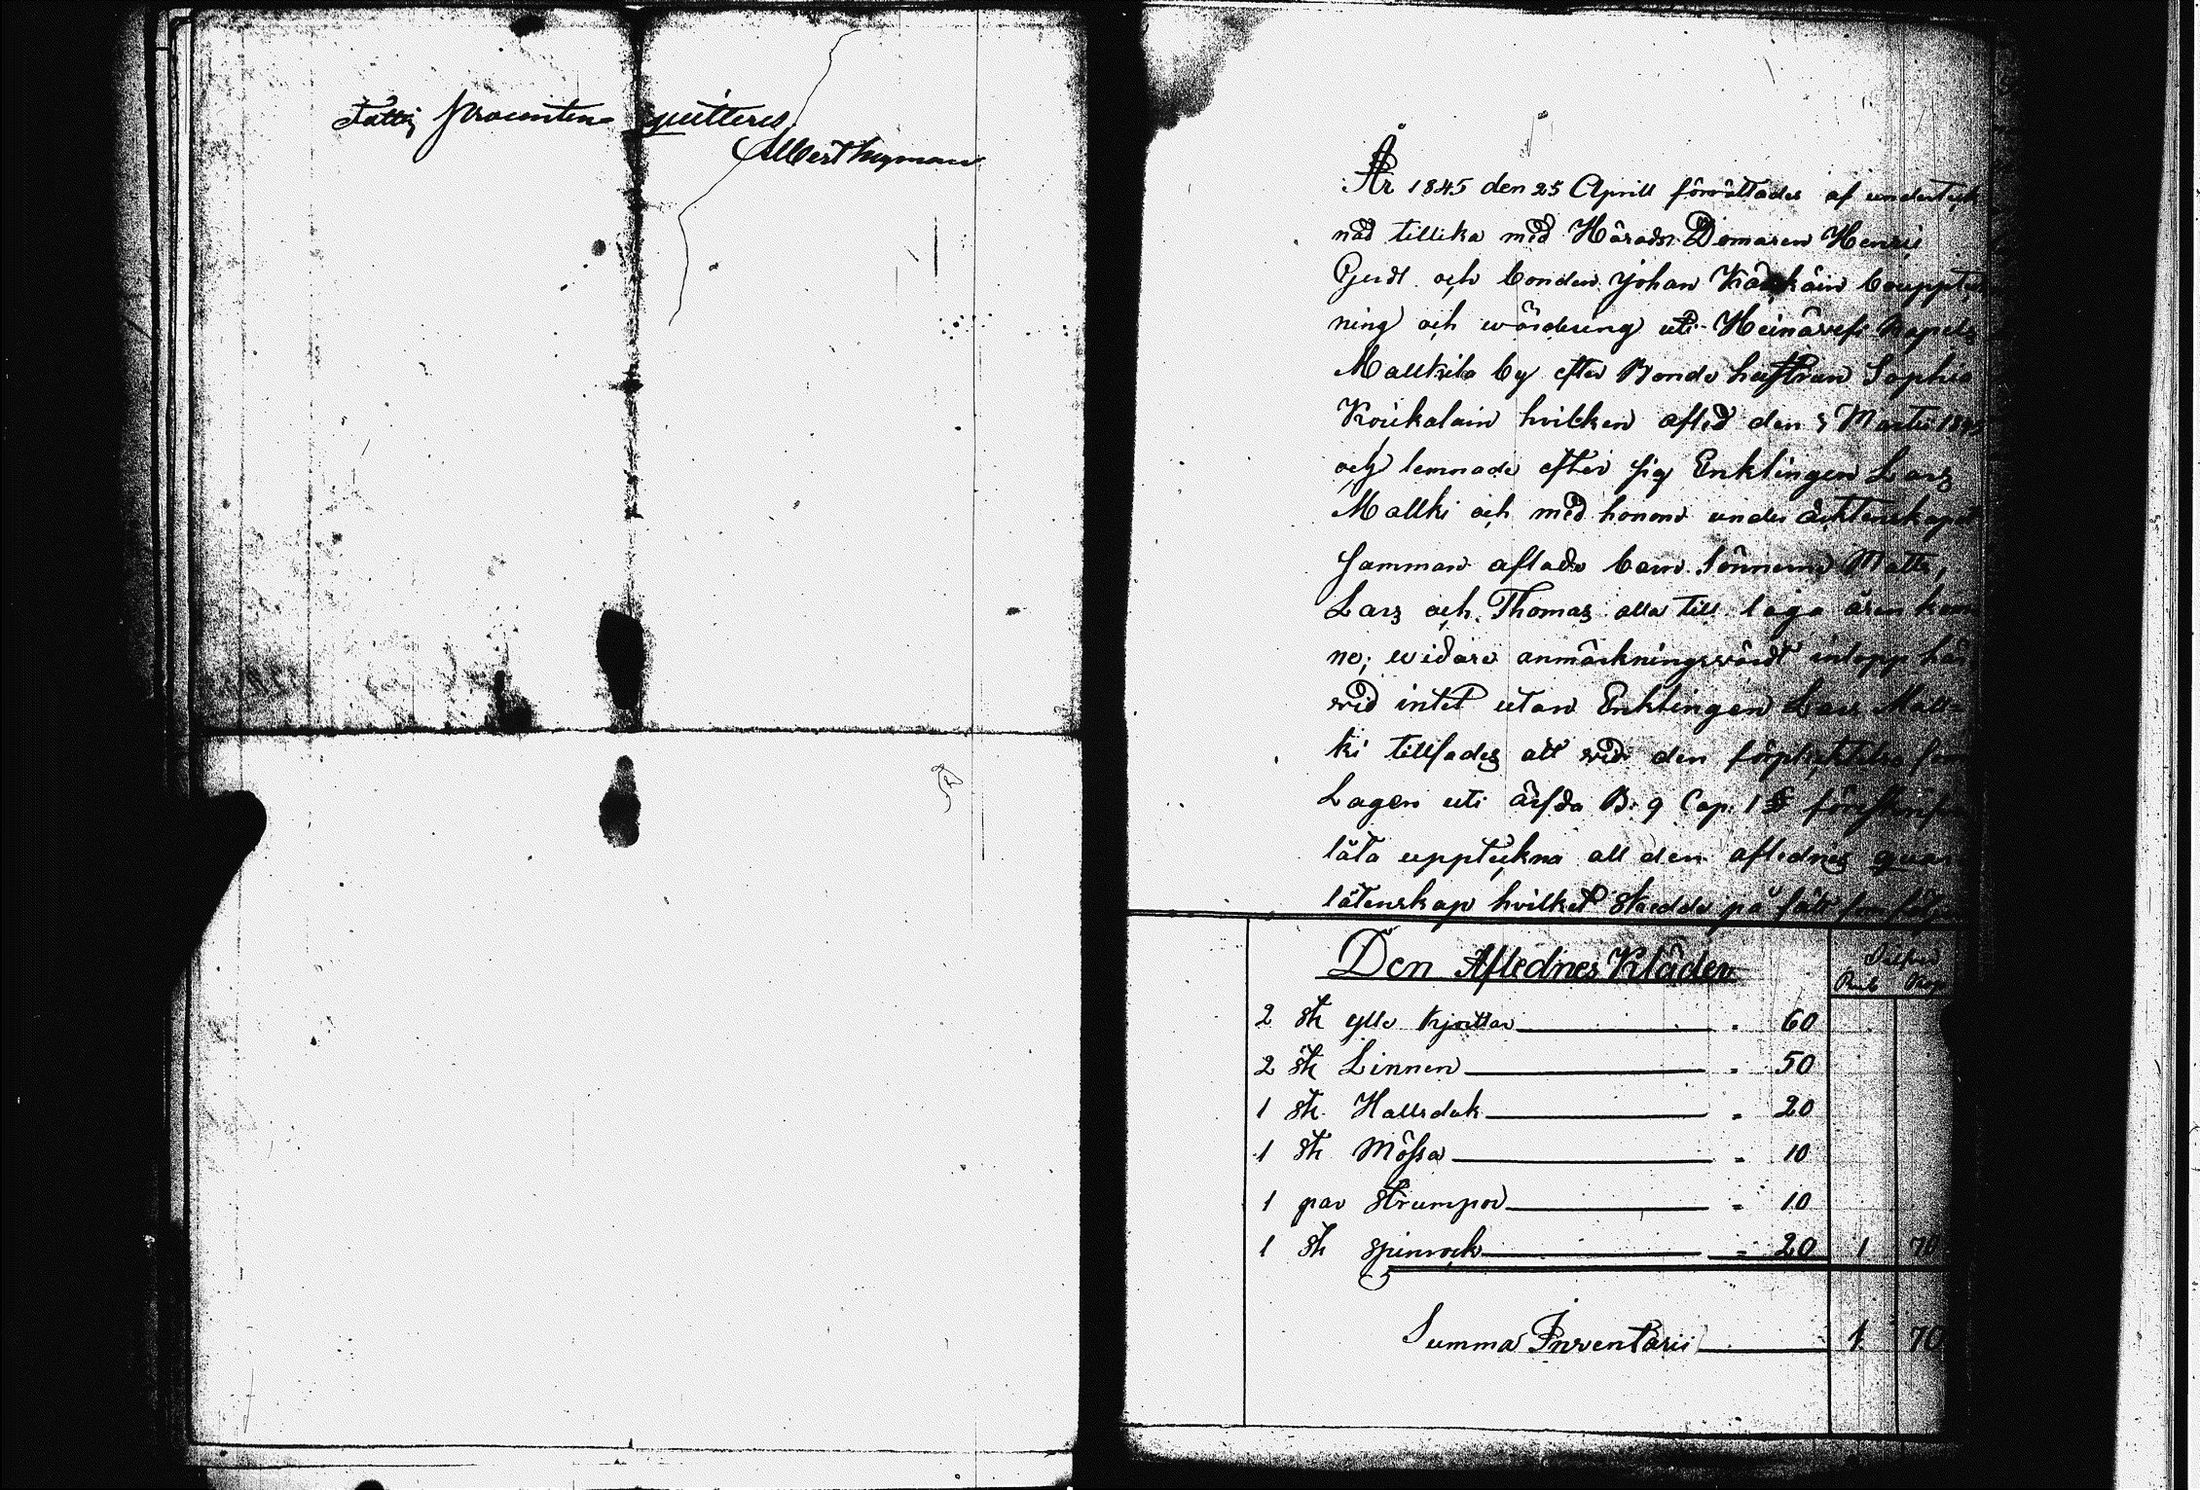 Fattig procenten quitteras
Albert Nyman
År 1845 den 25 Aprill förrättades af underteck
nad tillika med Härads Domaren Henric
och bonden Johan bouppteck
ning och wärdering uti Heinävesi Kapels
Mallkila by efter Bonde hustrun Sophia
Koukalain hvilken afled den Martii 1845
och lemnade efter sig Enklingen Lars
Mallki och med honom under äcktenskapet
samman aflade barn Sönnerne Matts,
Lars och Thomas alla till laga åren kom
ne; widare anmärkningswärdt intopp här
wid intet utan Enklingen Lars Mall-
ki tillsades att wid den förplicktelse som
Lagen uti ärfda B. 9 Cap. 1 § föreskrifver
låta uppteckna all den aflednes quar
låtenskap hvilket skedde på sätt som följer
Den Aflednes Kläder
Silfver
Rub Kop
2 st ylle kjortlar " 60
2 st Linnen " 50
1 st Hallsduk " 20
1 st Mössa " 10
1 par Strumpor " 10
1 st spinrock " 20 1 70
Summa Inventarii 1 70